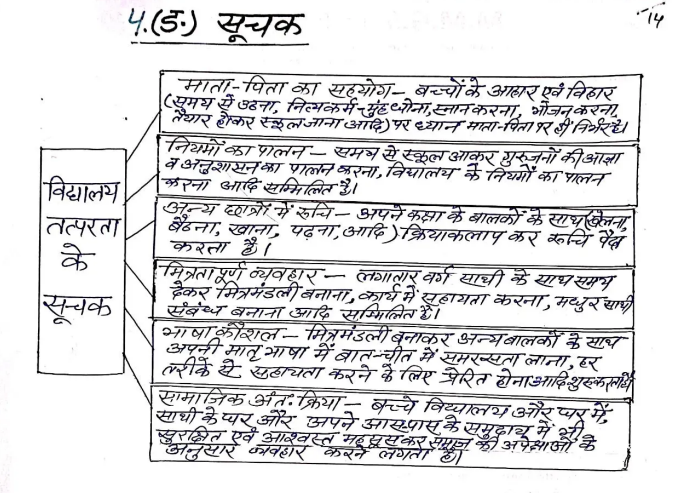 4.(ङ·) सूचक
14
विद्यालय
तत्परता
के
सूचक
माता-पिता का सहयोग - बच्चों के आहार एवं विहार
(समय से उठना, नित्यकर्म - मुंह धोना, स्नान करना, भोजन करना,
तैयार होकर स्कूल जाना आदि) पर ध्यान माता-पिता पर ही निर्भर है।
नियमों का पालन - समय से स्कूल आकर गुरुजनों की आज्ञा
व अनुशासन का पालन करना, विद्यालय के नियमों का पालन
करना आदि सम्मिलित है।
अन्य छात्रों में रुचि - अपने कक्षा के बालकों के साथ (खेलना,
बैठना, खाना, पढ़ना, आदि) क्रियाकलाप कर रुचि पैदा
करता है।
मित्रता पूर्ण व्यवहार - लगातार वर्ग साथी के साथ समय
देकर मित्रमंडली बनाना, कार्य में सहायता करना, मधुर साथी
संबंध बनाना आदि सम्मिलित है।
भाषा कौशल - मित्रमंडली बनाकर अन्य बालकों के साथ
अपनी मातृभाषा में बात-चीत में समरसता लाना, हर
तरीके से सहायता करने के लिए प्रेरित होना आदि
सामाजिक अंत: क्रिया - बच्चे विद्यालय और घर में,
साथी के घर और अपने आसपास के समुदाय में भी
सुरक्षित एवं आश्वस्त महसूस कर समाज की अपेक्षाओं के
अनुसार व्यवहार करने लगता है।